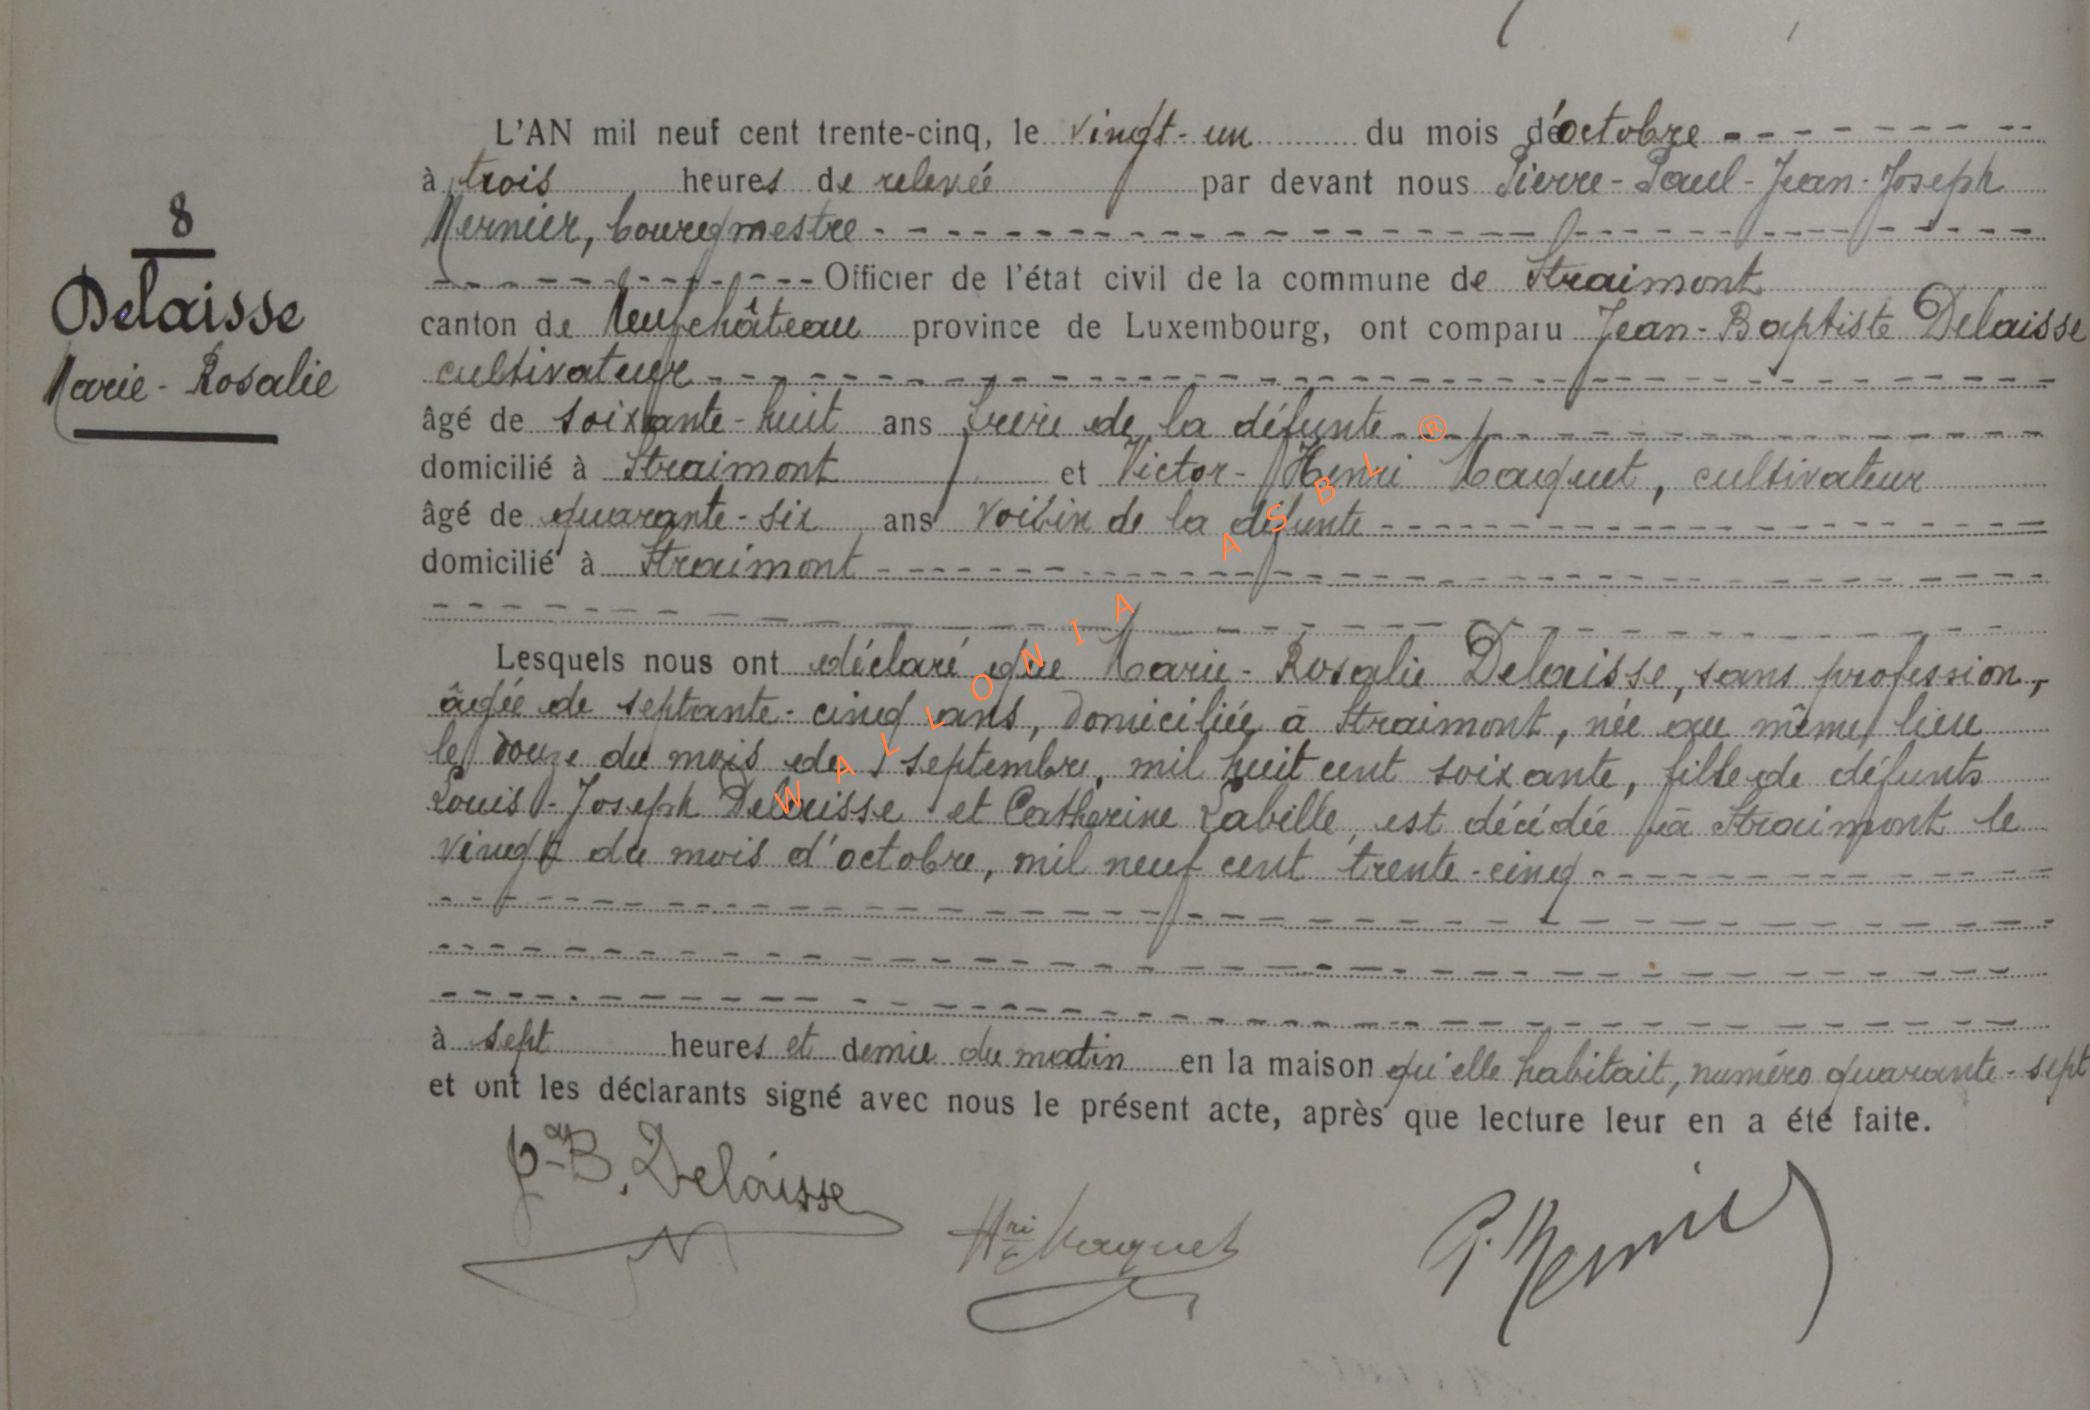 8
Delaisse
Marie-Rosalie
L'AN mil neuf cent trente-cinq, le vingt-un du mois d'octobre
à trois heures de relevée par devant nous Pierre-Paul-Jean-Joseph
Mernier, bourgmestre
Officier de l'état civil de la commune de Straimont
canton de Neufchâteau province de Luxembourg, ont comparu Jean-Baptiste Delaisse
cultivateur
âgé de soixante-huit ans frère de la défunte
domicilié à Straimont et Victor-Henri Maquet, cultivateur
âgé de quarante-six ans voisin de la défunte
domicilié à Straimont
Lesquels nous ont déclaré que Marie-Rosalie Delaisse, sans profession,
âgée de septante-cinq ans, domiciliée à Straimont, née au même lieu
le douze du mois de septembre, mil huit cent soixante, fille de défunts
Louis-Joseph Delaisse et Catherine Labille, est décédée à Straimont le
vingt du mois d'octobre, mil neuf cent trente-cinq
à sept heures et demie du matin en la maison qu'elle habitait, numéro quarante-sept
et ont les déclarants signé avec nous le présent acte, après que lecture leur en a été faite.
J-B. Delaisse
Hri Maquet
P. Mernier
WALLONIA ASBL ®